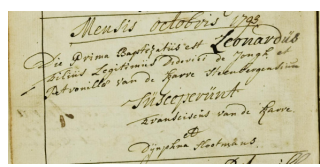 Mensis Octobris 1793
Die Prima Baptizatus est Leonardus
Filius Legitimus Diderici de Jongh et
Petronilla van de Karre Steenbergensium
Susceperunt
Franciscus van de Karre
et
Dijnphna Slootmans